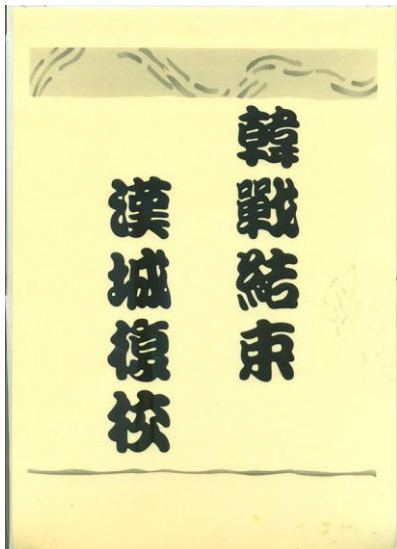 韓戰結束
漢城復校